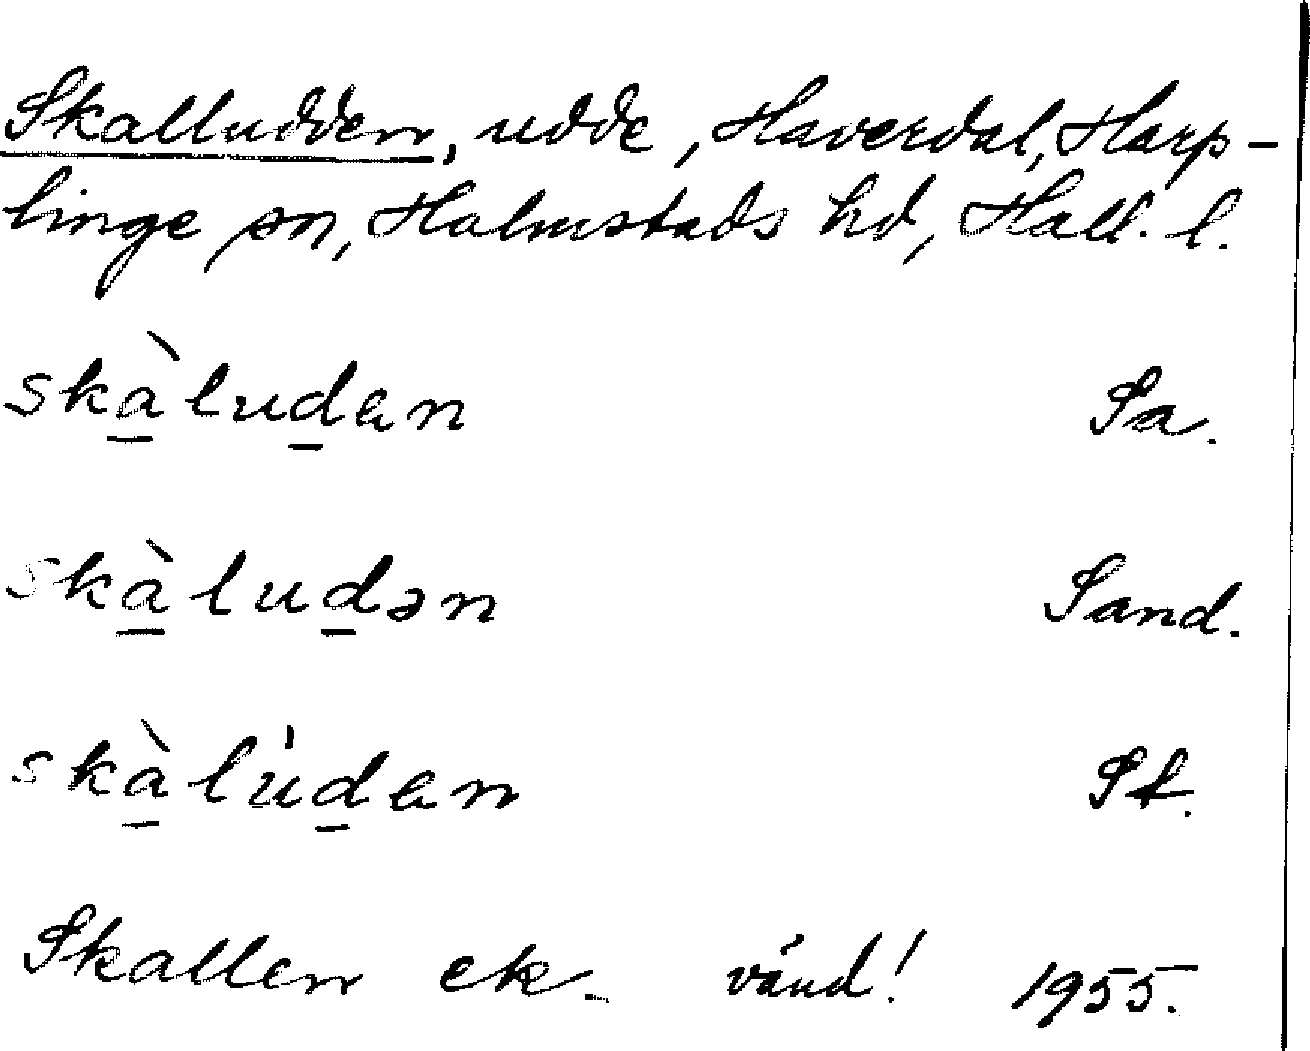 Skalludden, udde, Haverdal, Harp-
linge sn, Halmstads hd, Hall. l.
skàludan Sa.
skàludən Sand.
skàlu̍dan St.
Skallen ek. vänd! 1955.